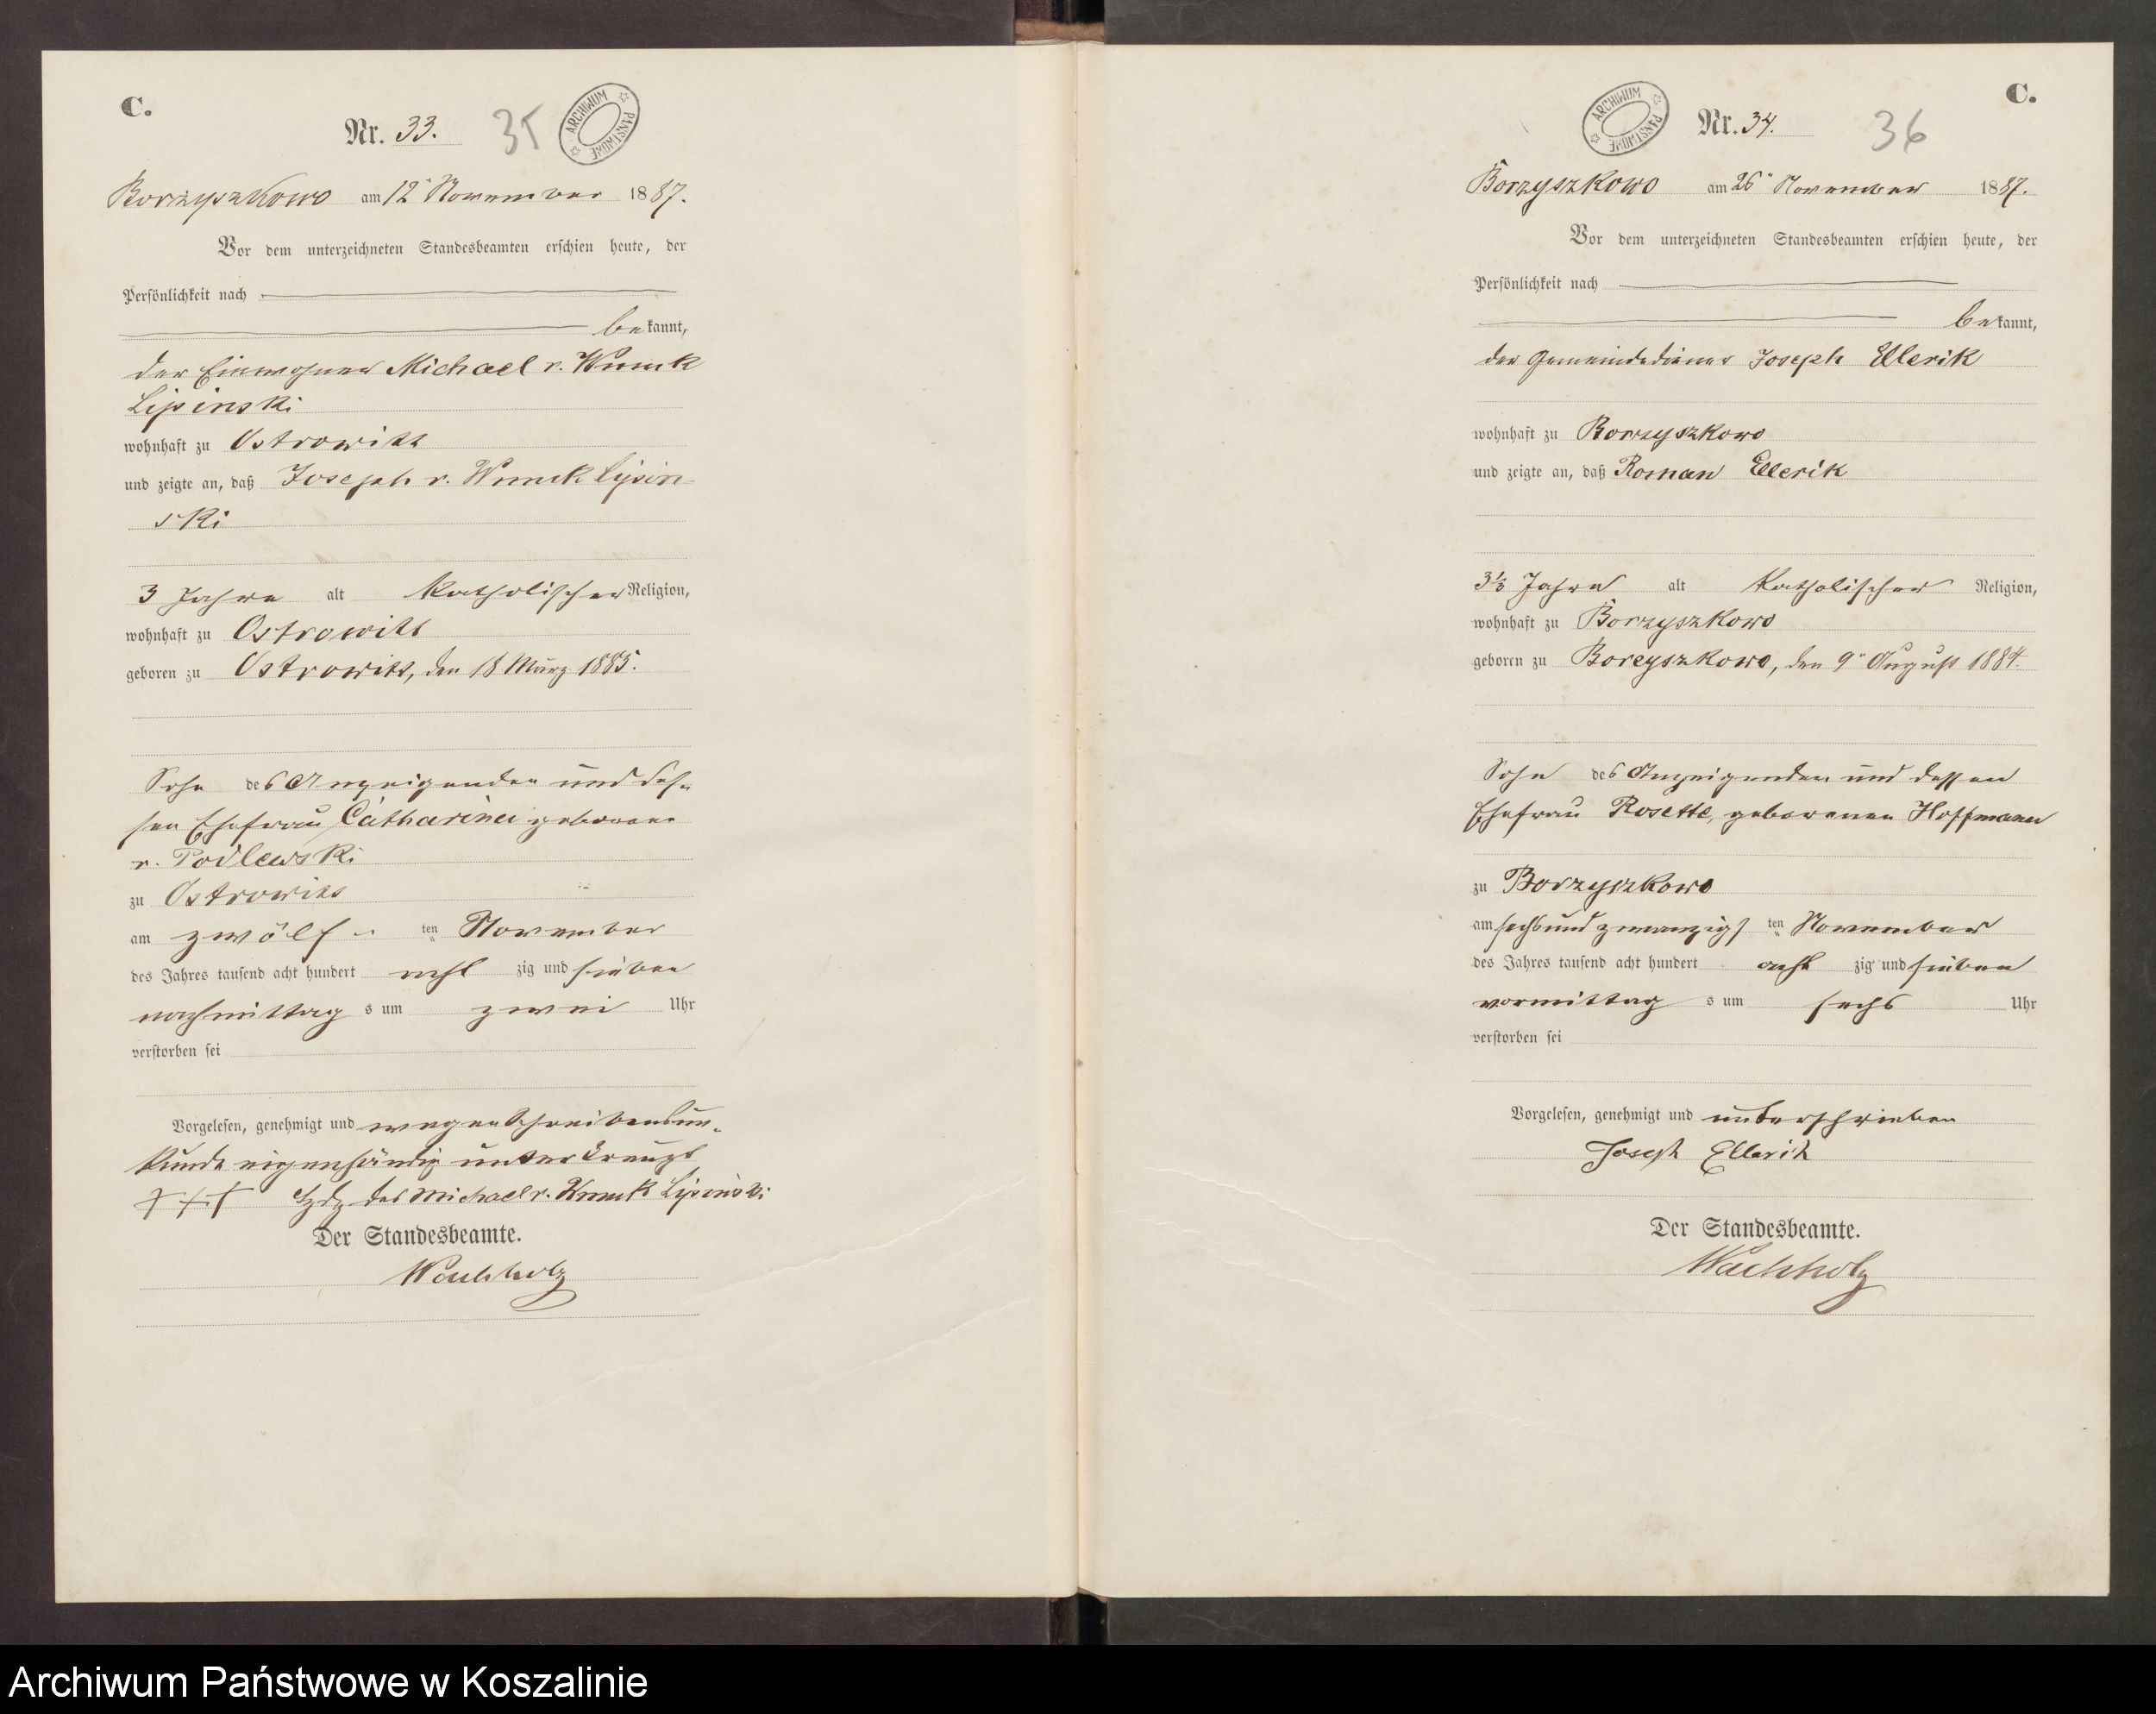 C.
Nr. 33. 35
ARCHIWUM PAŃSTWOWE
Borzyszkowo am 12ten November 1887.
Vor dem unterzeichneten Standesbeamten erschien heute, der
Persönlichkeit nach
bekannt,
der Einwohner Michael v. Wnuck
Lipinski
wohnhaft zu Ostrowitt
und zeigte an, daß Joseph v. Wnuck Lipin-
ski
3 Jahre alt katholischer Religion,
wohnhaft zu Ostrowitt
geboren zu Ostrowitt, den 18 März 1885.
Sohn des Anzeigenden und des-
sen Ehefrau Catharina geborene
v. Podlewski
zu Ostrowitt
am zwölf ten November
des Jahres tausend acht hundert acht zig und sieben
nachmittag s um zwei Uhr
verstorben sei
Vorgelesen, genehmigt und wegen Schreibensun-
kunde eigenhändig unterkreuzt
+++ Hzdg des Michael v. Wnuck Lipinski
Der Standesbeamte.
Wachholz
C.
ARCHIWUM PAŃSTWOWE
Nr. 34. 36
Borzyszkowo am 26ten November 1887.
Vor dem unterzeichneten Standesbeamten erschien heute, der
Persönlichkeit nach
bekannt,
der Gemeindediener Joseph Ellerik
wohnhaft zu Borzyszkowo
und zeigte an, daß Roman Ellerik
Jahre alt katholischer Religion,
wohnhaft zu Borzyszkowo
geboren zu Borzyszkowo, den 9ten August 1884.
Sohn des Anzeigenden und dessen
Ehefrau Rosette, geborenen Hoffmann
zu Borzyszkowo
am sechsundzwanzigs ten November
des Jahres tausend acht hundert acht zig und sieben
vormittag s um sechs Uhr
verstorben sei
Vorgelesen, genehmigt und unterschrieben
Joseph Ellerik
Der Standesbeamte.
Wachholz
Archiwum Państwowe w Koszalinie